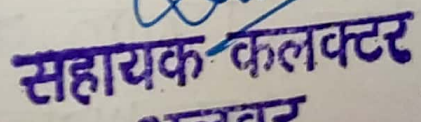 सहायक कलक्टर